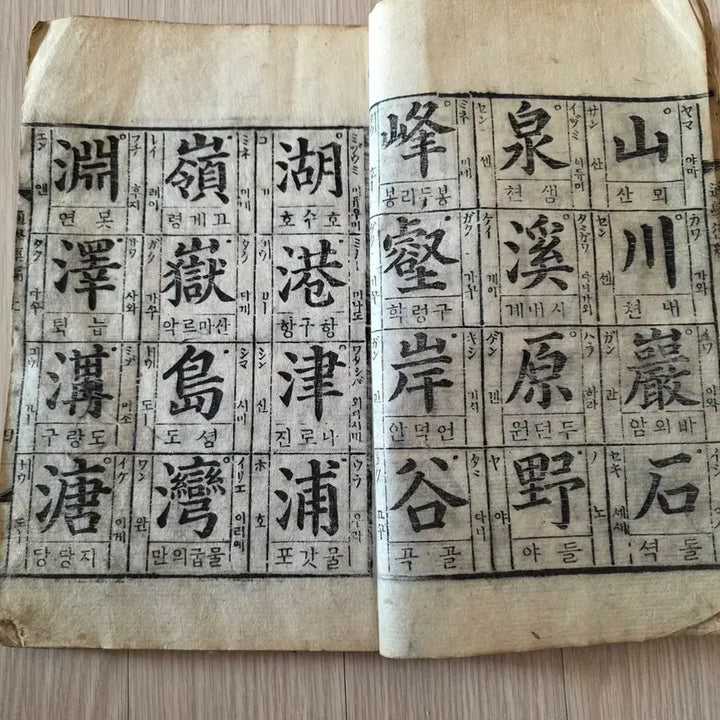 山
ヤマ 야마
サン 산
뫼산
川
カワ 가와
セン 센
내천
巖
イワ 이와
ガン 간
바위암
石
セキ
돌석
泉
イヅミ 이두미
セン 센
샘천
溪
タニガワ 다니가와
ケイ 게이
시내계
原
ハラ 하라
ゲン 겐
두던원
野
ノ 노
ヤ 야
들야
峰
ミネ 미네
봉두리봉
壑
ガク
구렁학
岸
キシ 기시
ガン
언덕안
谷
タニ 다니
골곡
湖
ミヅウミ
コ 고
호수호
港
미나도
コウ
항구항
津
ワタシバ 와다시바
シン 신
나로진
浦
ウラ 우라
ホ 호
물갓포
嶺
ミネ 미네
レイ 레이
고게령
嶽
タケ 다게
ガク 가구
산마르악
島
シマ 시마
トウ 도ー
셤도
灣
イリエ 이리에
ワン 완
물굽의만
淵
フチ 후지
エン 엔
못연
澤
サワ 사와
タク 다구
늡퇵
溝
ミゾ 미소
コウ 고ー
도랑구
塘
イケ 이게
トウ 도ー
지당당